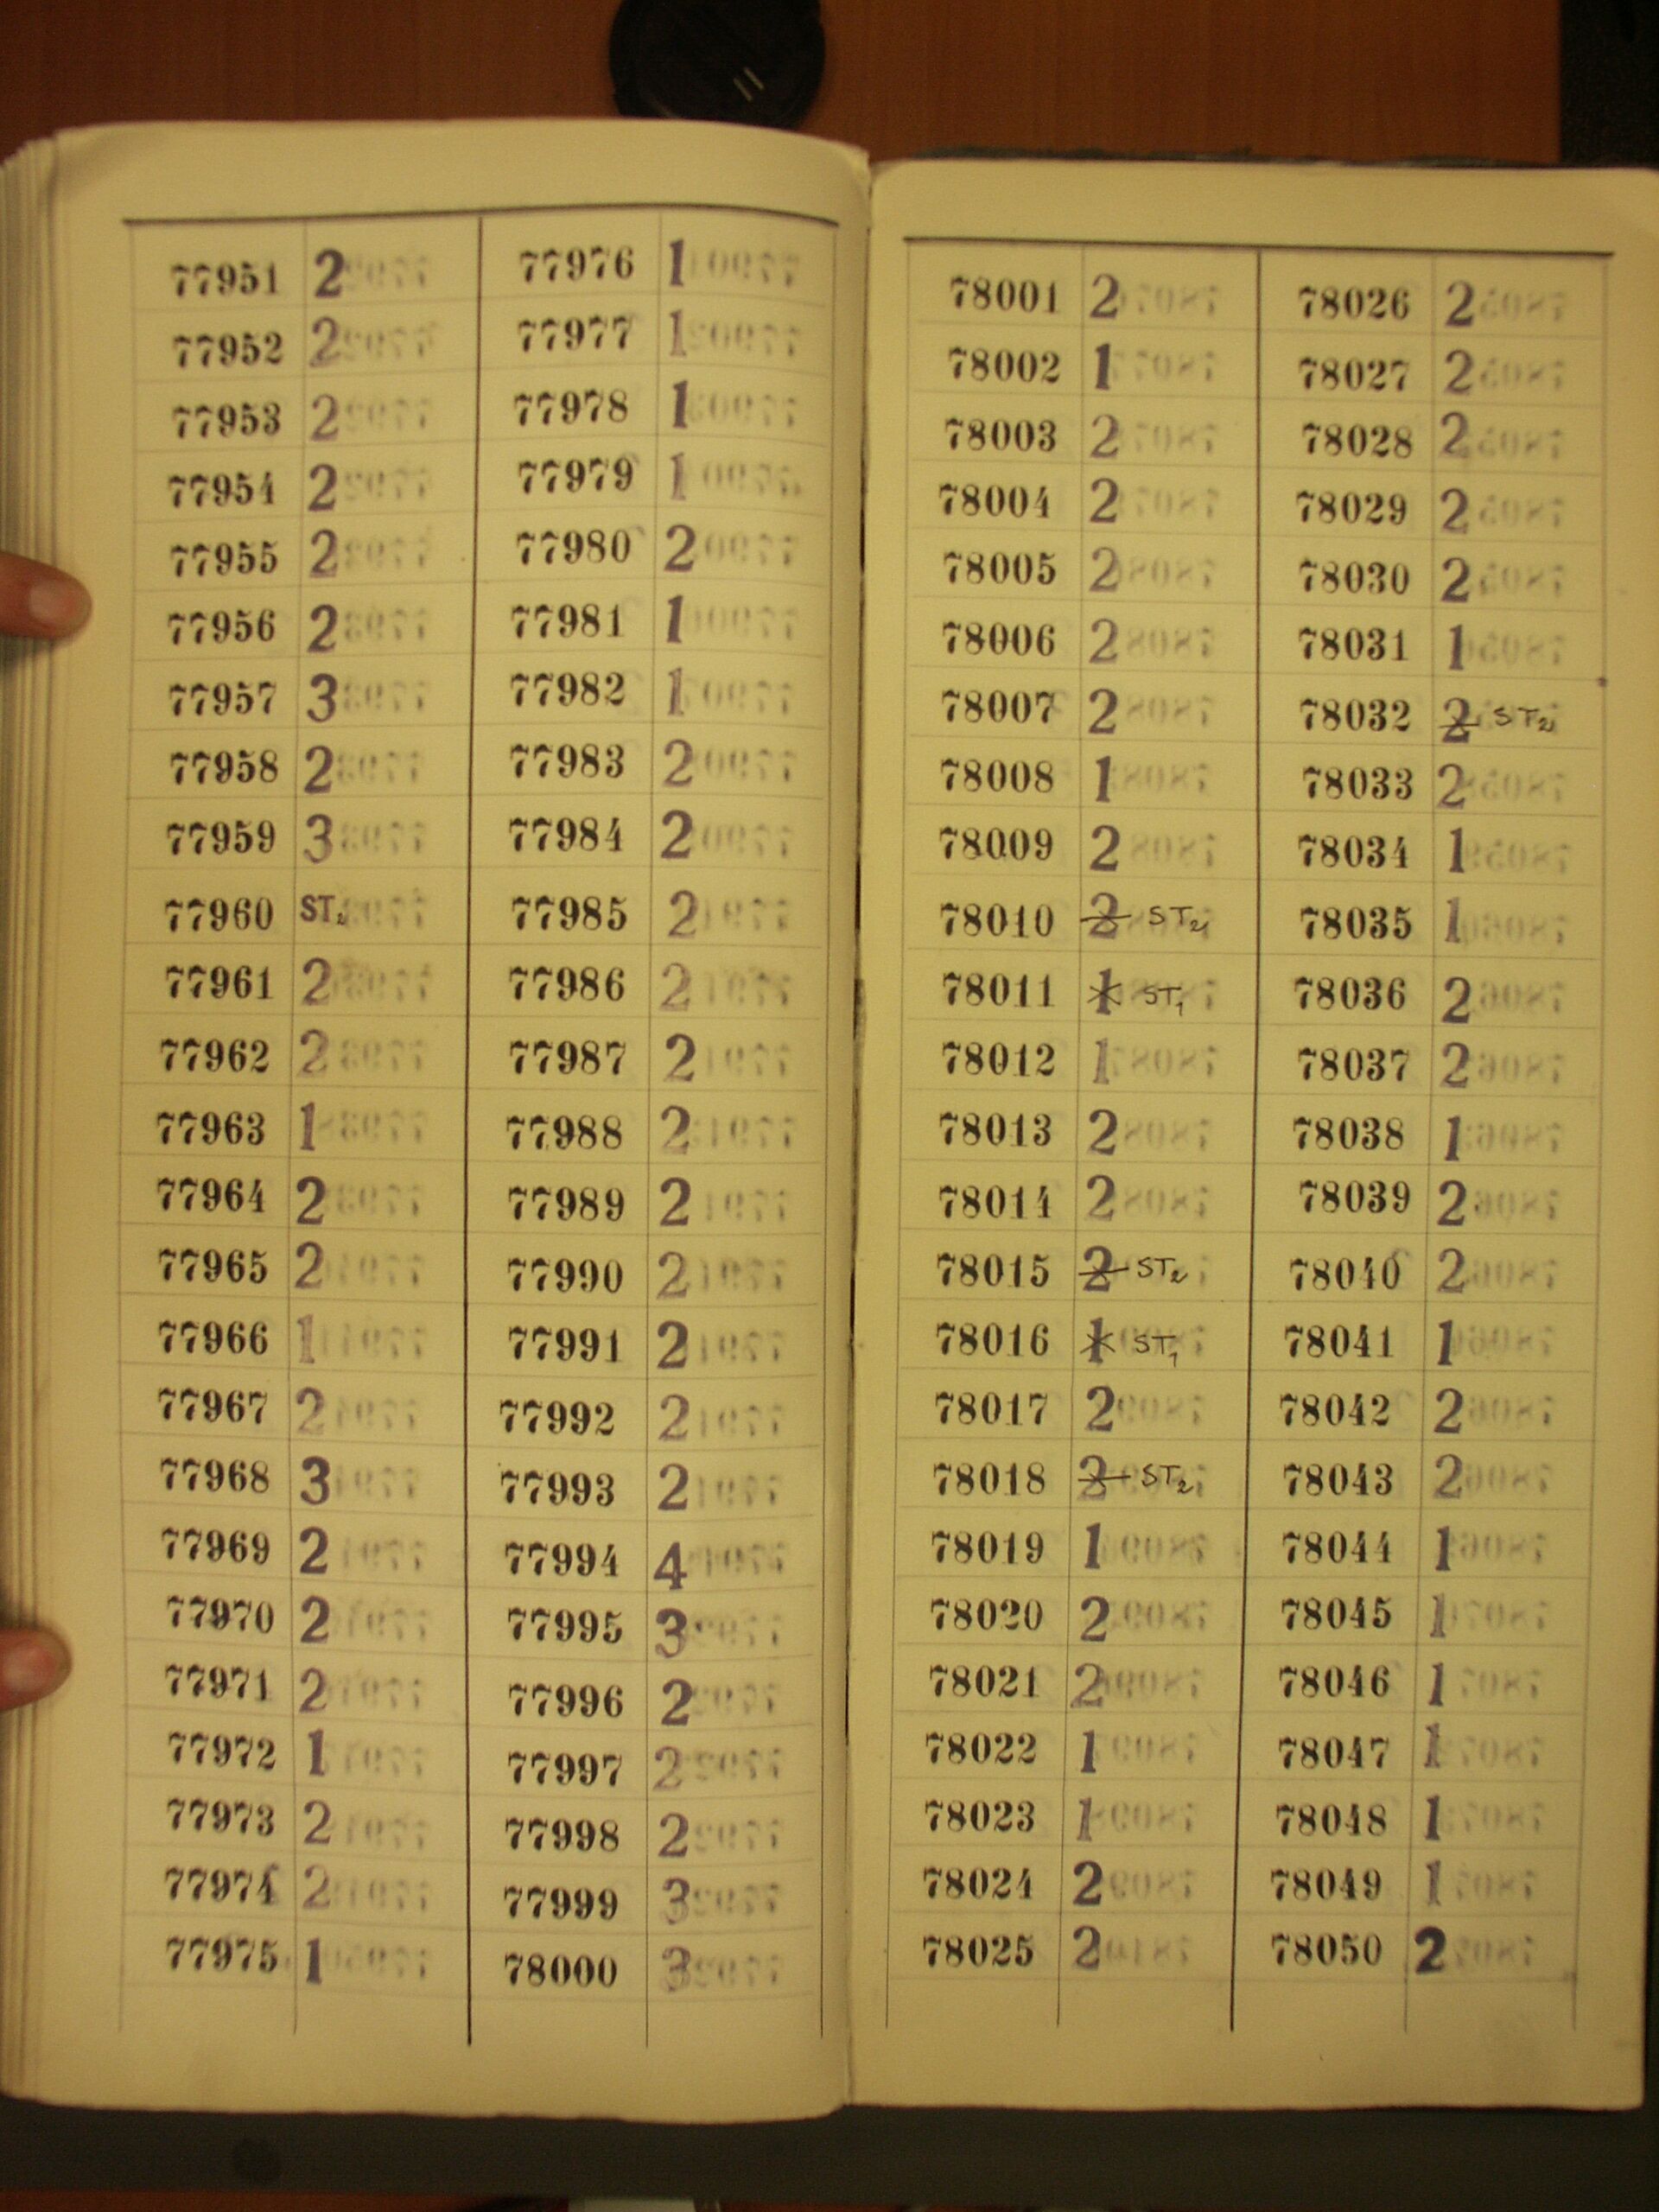 77951 2
77952 2
77953 2
77954 2
77955 2
77956 2
77957 3
77958 2
77959 3
77960 ST2
77961 2
77962 2
77963 1
77964 2
77965 2
77966 1
77967 2
77968 3
77969 2
77970 2
77971 2
77972 1
77973 2
77974 2
77975 1
77976 1
77977 1
77978 1
77979 1
77980 2
77981 1
77982 1
77983 2
77984 2
77985 2
77986 2
77987 2
77988 2
77989 2
77990 2
77991 2
77992 2
77993 2
77994 4
77995 3
77996 2
77997 2
77998 2
77999 3
78000 3
78001 2
78002 1
78003 2
78004 2
78005 2
78006 2
78007 2
78008 1
78009 2
78010 2 ST2
78011 1 ST1
78012 1
78013 2
78014 2
78015 2 ST2
78016 1 ST1
78017 2
78018 2 ST2
78019 1
78020 2
78021 2
78022 1
78023 1
78024 2
78025 2
78026 2
78027 2
78028 2
78029 2
78030 2
78031 1
78032 2 ST2
78033 2
78034 1
78035 1
78036 2
78037 2
78038 1
78039 2
78040 2
78041 1
78042 2
78043 2
78044 1
78045 1
78046 1
78047 1
78048 1
78049 1
78050 2